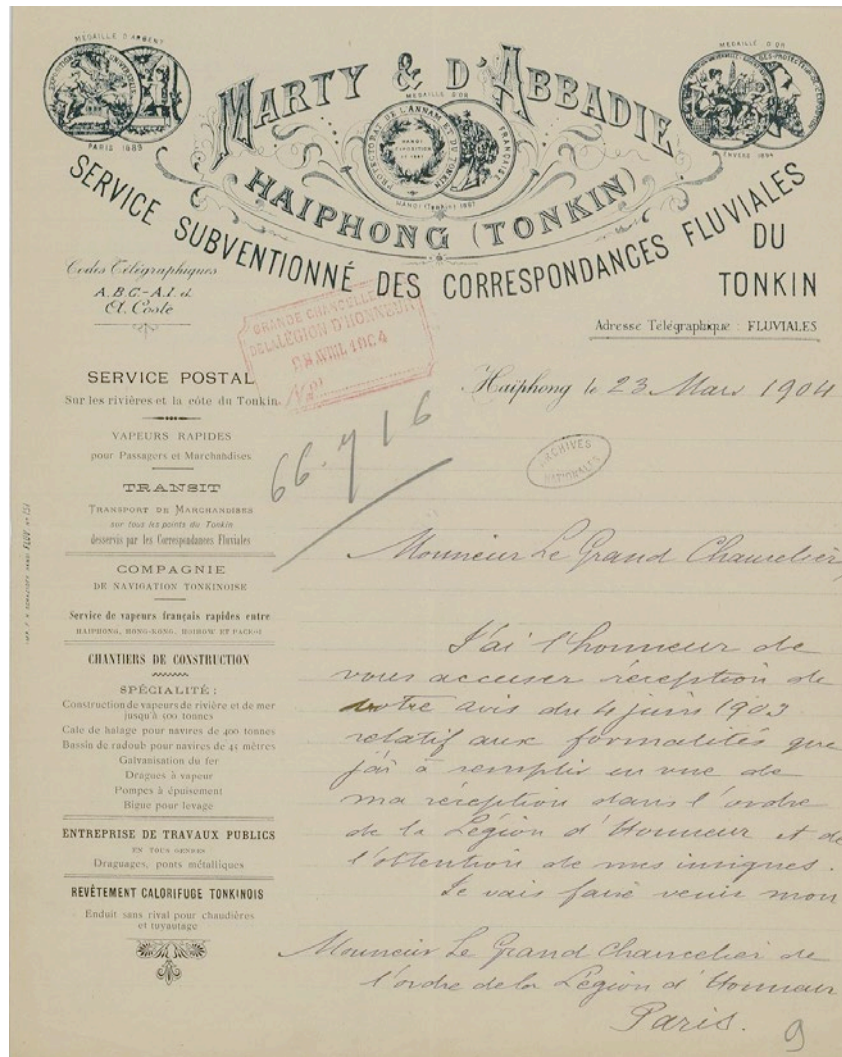 MEDAILLE D'ARGENT
EXPOSITION UNIVERSELLE
PARIS 1889
MARTY & D'ABBADIE
MEDAILLE D'OR
PROTECTORAT DE L'ANNAM ET DU TONKIN
HANOI
EXPOSITION
FRANÇAISE
HANOI (TONKIN) 1887
MEDAILLE D'OR
ANVERS 1894
HAIPHONG (TONKIN)
SERVICE SUBVENTIONNÉ DES CORRESPONDANCES FLUVIALES
DU
TONKIN
Codes Télégraphiques
A.B.C.-A.I. et
A. Coste
Adresse Télégraphique : FLUVIALES
GRANDE CHANCELLERIE
DE LA LÉGION D'HONNEUR
AVRIL 1904
Haïphong le 23 Mars 1904
66.716
ARCHIVES
NATIONALES
SERVICE POSTAL
Sur les rivières et la côte du Tonkin
VAPEURS RAPIDES
pour Passagers et Marchandises
TRANSIT
TRANSPORT DE MARCHANDISES
sur tous les points du Tonkin
desservis par les Correspondances Fluviales
COMPAGNIE
DE NAVIGATION TONKINOISE
Service de vapeurs français rapides entre
HAIPHONG, HONG-KONG, HOIHOW ET PACKOI
CHANTIERS DE CONSTRUCTION
SPÉCIALITÉ :
Construction de vapeurs de rivière et de mer
jusqu'à 500 tonnes
Cale de halage pour navires de 400 tonnes
Bassin de radoub pour navires de 45 mètres
Galvanisation du fer
Dragues à vapeur
Pompes à épuisement
Bigue pour levage
ENTREPRISE DE TRAVAUX PUBLICS
EN TOUS GENRES
Draguages, ponts métalliques
REVÊTEMENT CALORIFUGE TONKINOIS
Enduit sans rival pour chaudières
et tuyautage
Monsieur Le Grand Chancelier,
J'ai l'honneur de
vous accuser réception de
votre avis du 4 juin 1903
relatif aux formalités que
j'ai à remplir en vue de
ma réception dans l'ordre
de la Légion d'Honneur et de
l'obtention de mes insignes.
Je vais faire venir mon
Monsieur Le Grand Chancelier de
l'ordre de la Légion d'Honneur
Paris.
9